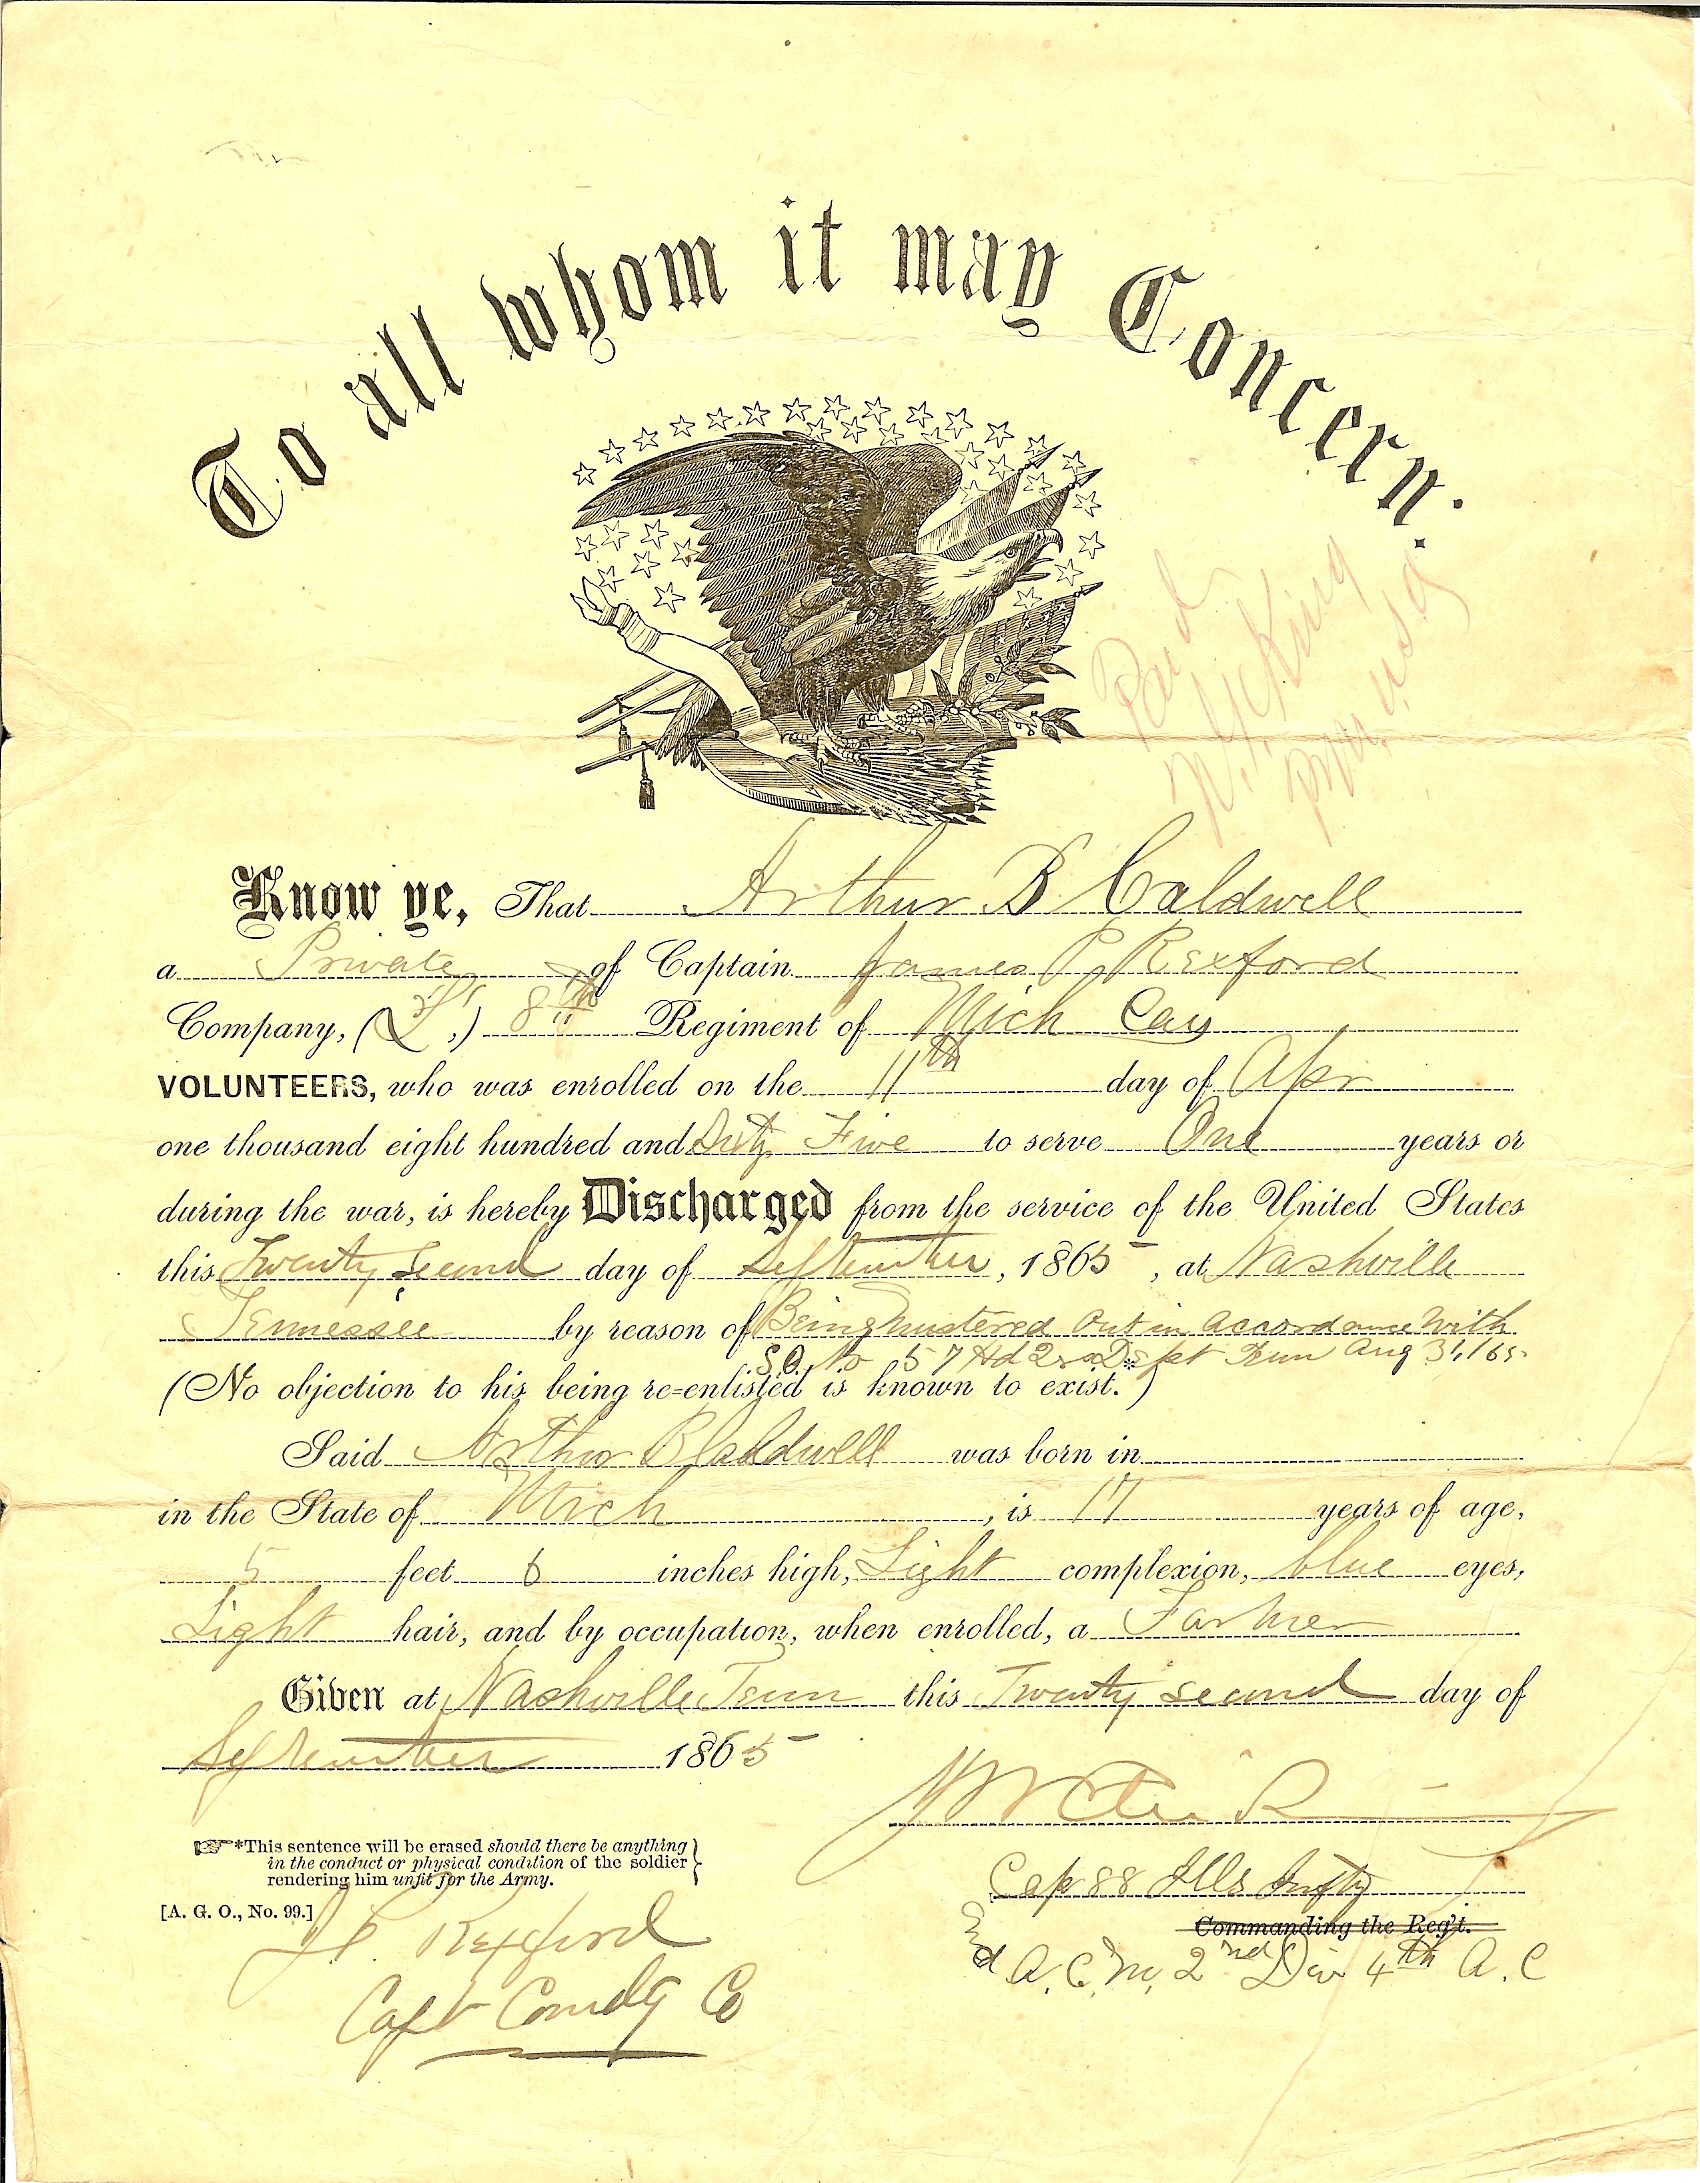 To all whom it may Concern.
Paid
King
U.S.A
Know ye, That Arthur B Caldwell
a Private of Captain James P. Rexford
Company, ("L",) 8th Regiment of Mich Cav
VOLUNTEERS, who was enrolled on the 11th day of Apr
one thousand eight hundred and Sixty Five to serve One years or
during the war, is hereby Discharged from the service of the United States
this Twenty Second day of September, 1865, at Nashville
Tennessee by reason of Being Mustered Out in Accordance With
S.O. No 57 Hd Qrs Dept Tenn Aug 31, /65.
(No objection to his being re-enlisted is known to exist.*)
Said Arthur B Caldwell was born in
in the State of Mich, is 17 years of age,
5 feet 6 inches high, Light complexion, blue eyes,
Light hair, and by occupation, when enrolled, a Farmer
Given at Nashville Tenn this Twenty Second day of
September 1865
*This sentence will be erased should there be anything
in the conduct or physical condition of the soldier
rendering him unfit for the Army.
[A. G. O., No. 99.]
J P. Rexford
Capt Comdg Co
Cap 88 Ills Infty
Commanding the Reg't.
and A.C.M. 2nd Div 4th A.C